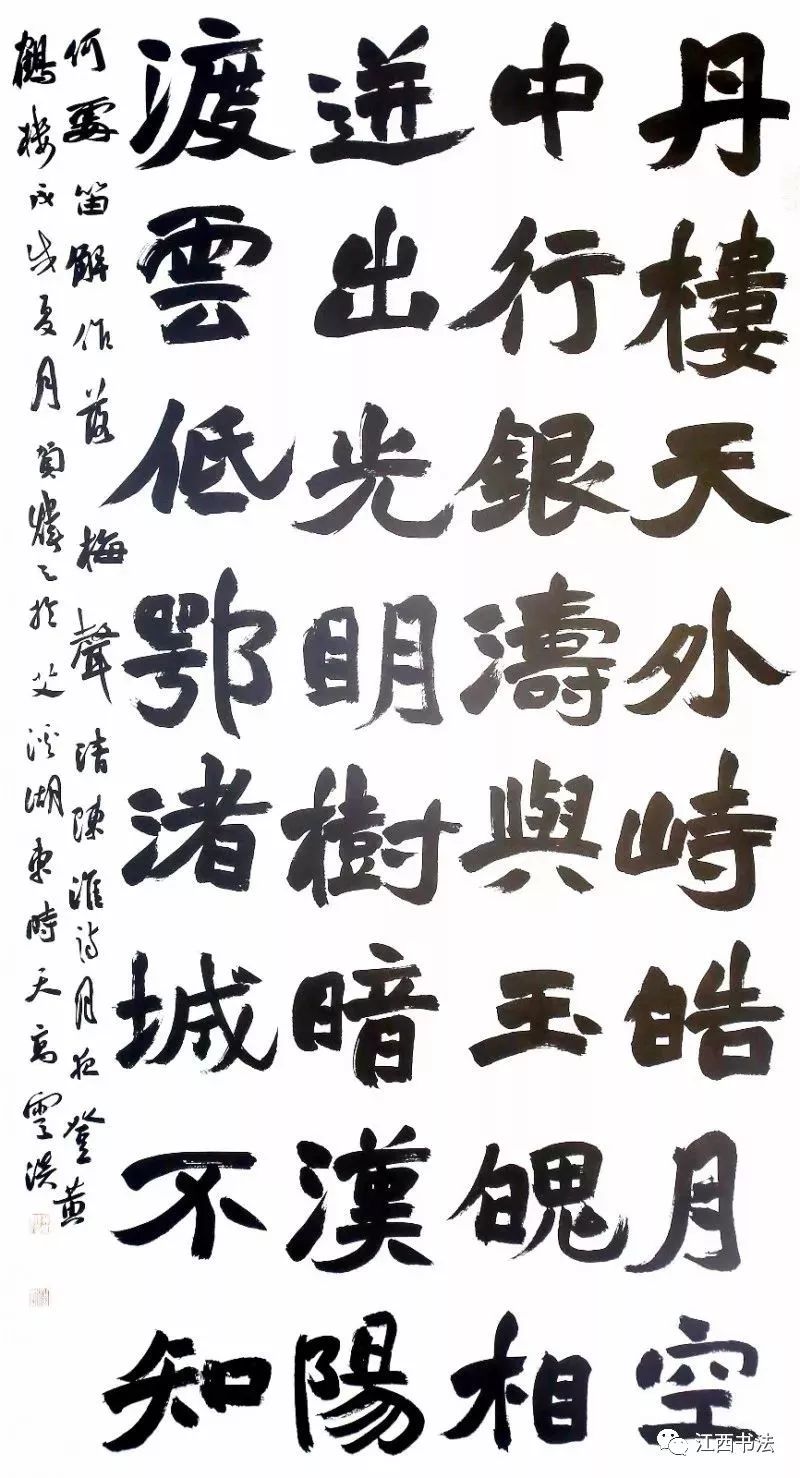 丹樓天外峙皓月空
中行銀濤與玉魄相
迸出光明樹暗漢陽
渡雲低鄂渚城不知
何處笛解作落梅聲清陳淮詩月夜登黃
鶴樓戊戌夏月於艾溪湖東時天高雲淡
江西书法